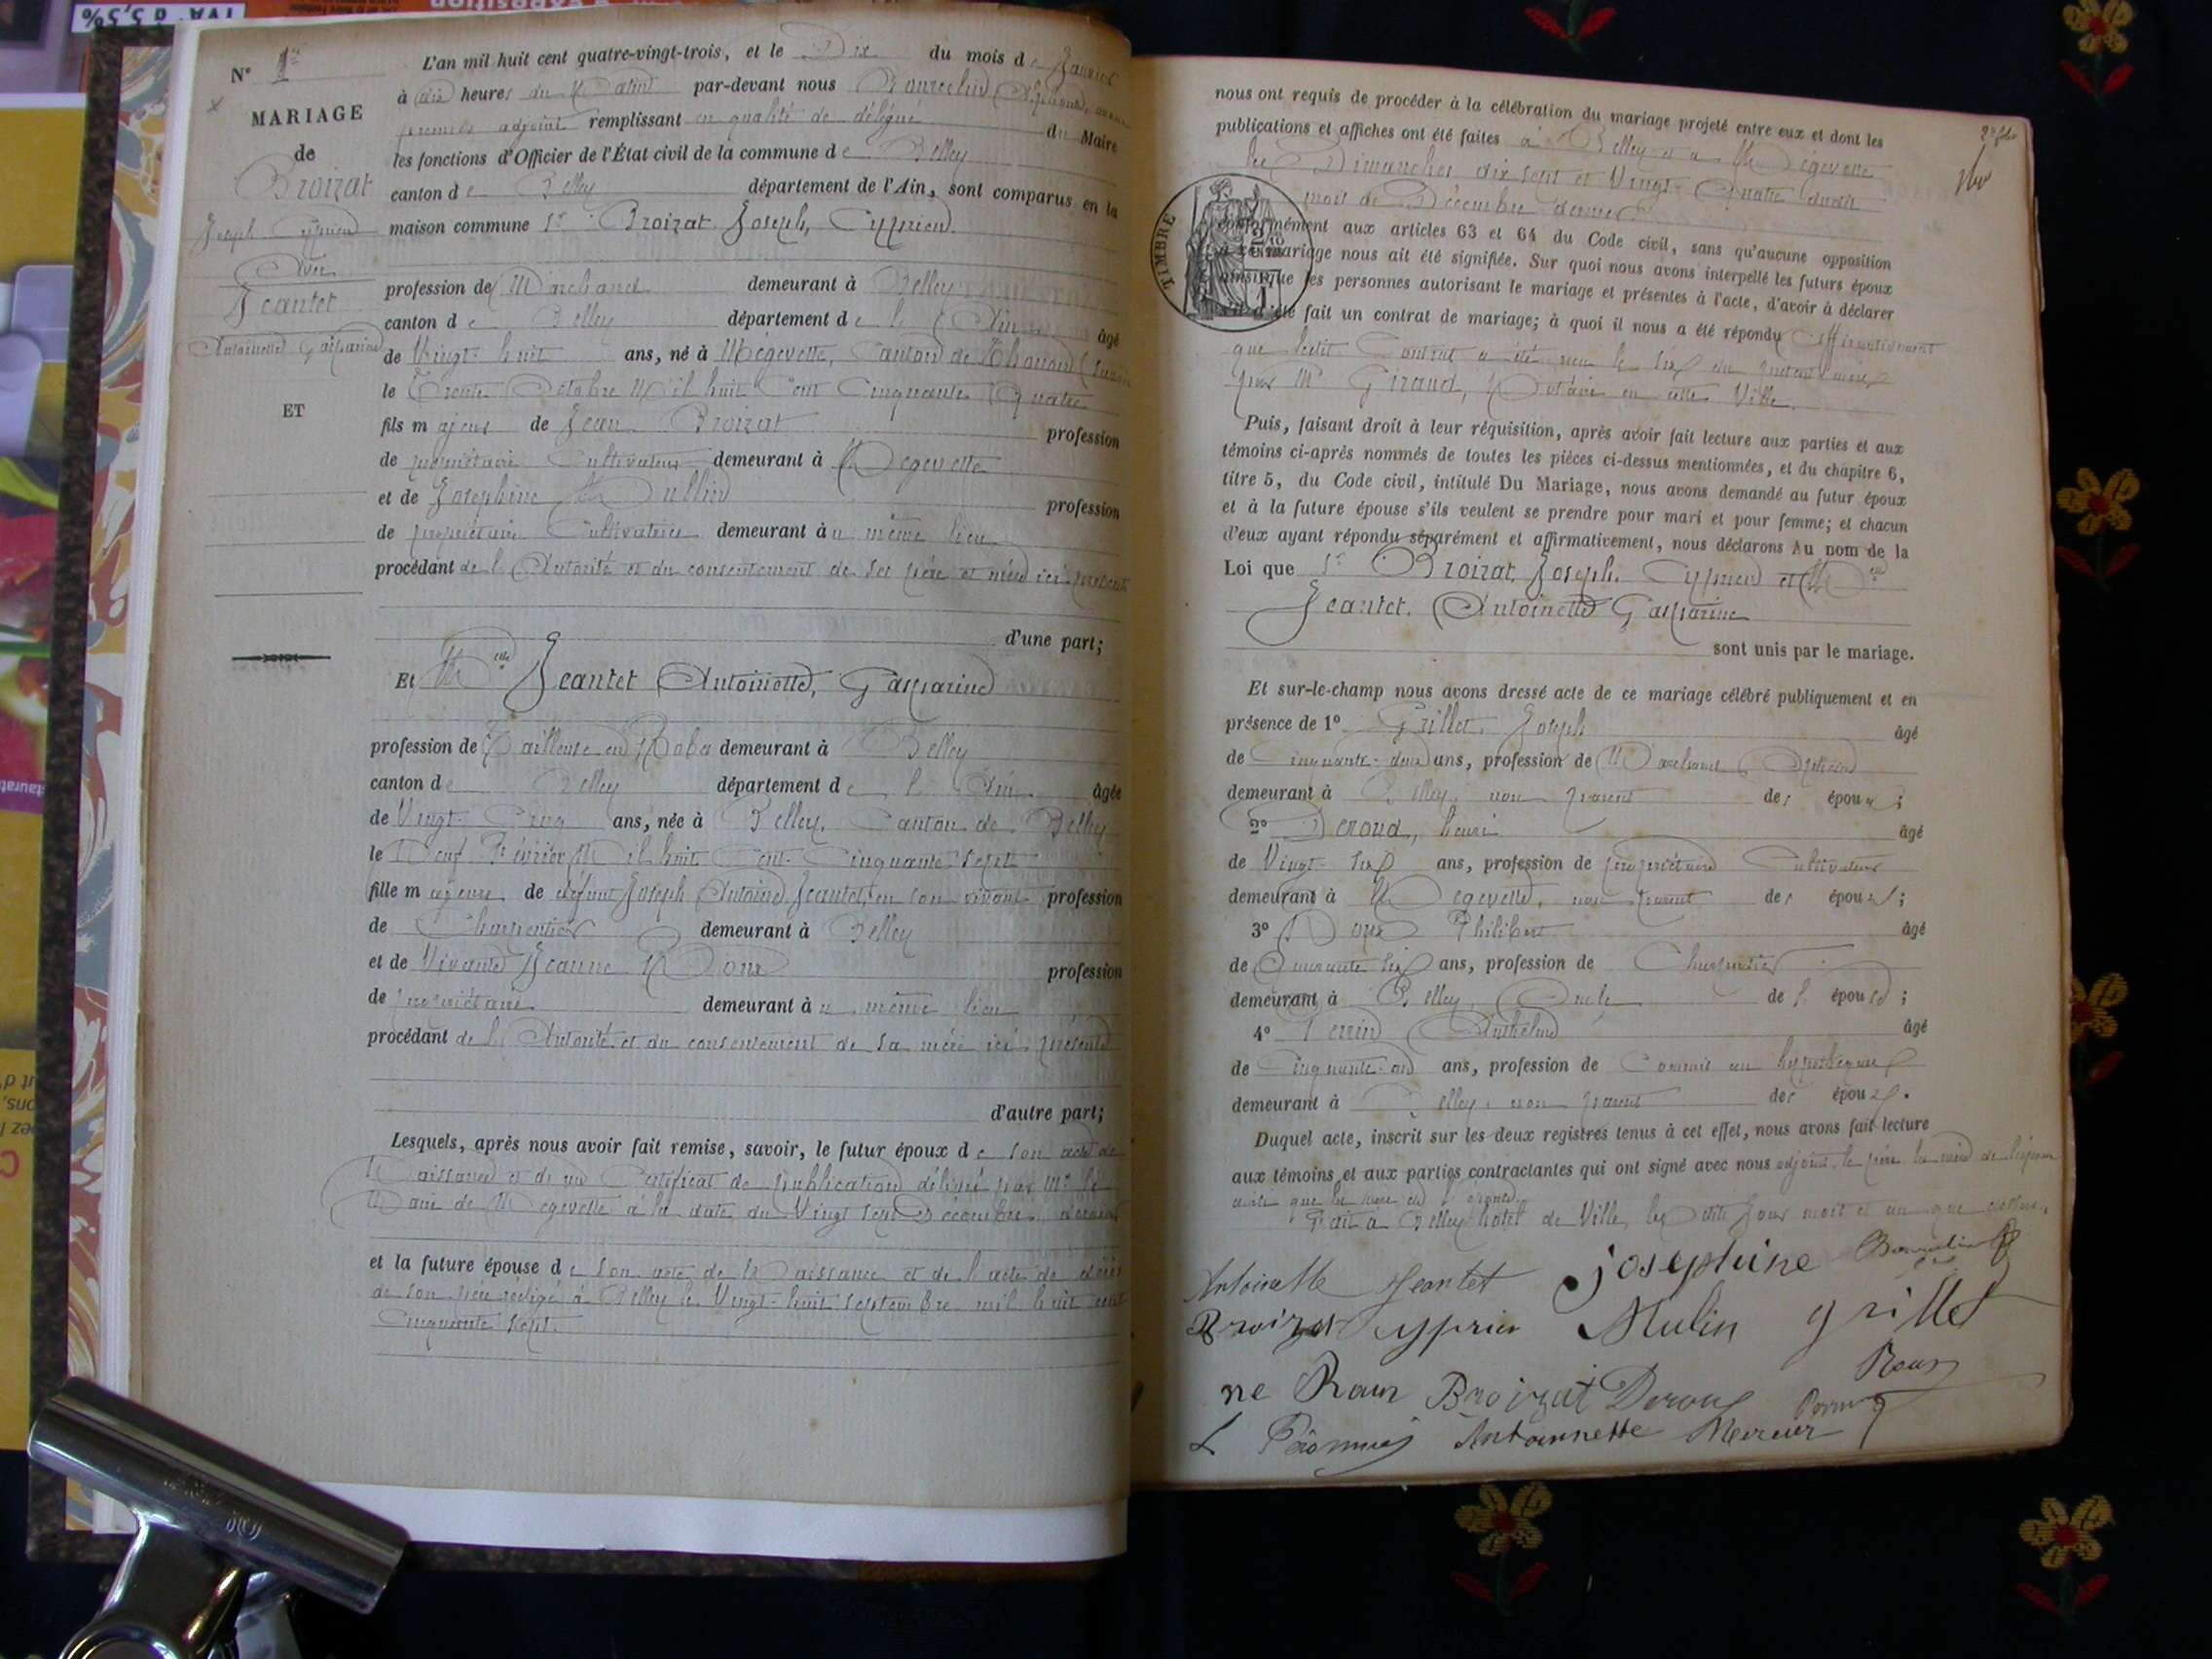 TVA à 5,5%
N° 1er
MARIAGE
de
Broizat
Joseph Cyprien
Avec
Jeantet
Antoinette Gasparine
ET
L'an mil huit cent quatre-vingt-trois, et le Dix du mois de Janvier
à dix heures du Matin par-devant nous
premier adjoint remplissant en qualité de délégué du Maire
les fonctions d'Officier de l'État civil de la commune de Belley
canton de Belley département de l'Ain, sont comparus en la
maison commune Sr Broizat Joseph, Cyprien.
profession de Marchand demeurant à Belley
canton de Belley département de l'Ain âgé
de Vingt-huit ans, né à Megevette, Canton de Thonon
le Trente Octobre Mil huit Cent Cinquante Quatre
fils majeur de Jean Broizat profession
de propriétaire Cultivateur demeurant à Megevette
et de Josephine Mullin profession
de propriétaire Cultivatrice demeurant au même lieu
procédant de l'Autorité et du consentement de ses père et mère ici présents
d'une part;
Et Melle Jeantet Antoinette, Gasparine
profession de Tailleuse en Robes demeurant à Belley
canton de Belley département de l'Ain âgée
de Vingt-Cinq ans, née à Belley, Canton de Belley
le Neuf Février Mil huit Cent Cinquante Sept
fille majeure de défunt Joseph Antoine Jeantet, en son vivant profession
de Charpentier demeurant à Belley
et de Vivante Jeanne Roux profession
de propriétaire demeurant au même lieu
procédant de l'Autorité et du consentement de sa mère ici présente
d'autre part;
Lesquels, après nous avoir fait remise, savoir, le futur époux de son acte de
Naissance et de un Certificat de publication délivré par Mr le
Maire de Megevette à la date du Vingt sept Décembre dernier
et la future épouse de son acte de Naissance et de l'acte de décès
de son père rédigé à Belley le Vingt-huit Septembre mil huit cent
Cinquante sept.
nous ont requis de procéder à la célébration du mariage projeté entre eux et dont les
publications et affiches ont été faites à Belley et à Megevette
les Dimanches dix sept et Vingt-Quatre dudit
mois de Décembre dernier
conformément aux articles 63 et 64 du Code civil, sans qu'aucune opposition
à ce mariage nous ait été signifiée. Sur quoi nous avons interpellé les futurs époux
ainsi que les personnes autorisant le mariage et présentes à l'acte, d'avoir à déclarer
s'il a été fait un contrat de mariage; à quoi il nous a été répondu Affirmativement
que ledit Contrat a été reçu le six du présent mois
par Me Giraud, Notaire en cette Ville.
TIMBRE
Puis, faisant droit à leur réquisition, après avoir fait lecture aux parties et aux
témoins ci-après nommés de toutes les pièces ci-dessus mentionnées, et du chapitre 6,
titre 5, du Code civil, intitulé Du Mariage, nous avons demandé au futur époux
et à la future épouse s'ils veulent se prendre pour mari et pour femme; et chacun
d'eux ayant répondu séparément et affirmativement, nous déclarons Au nom de la
Loi que Sr Broizat, Joseph, Cyprien et Melle
Jeantet. Antoinette Gasparine
sont unis par le mariage.
Et sur-le-champ nous avons dressé acte de ce mariage célébré publiquement et en
présence de 1° Grillet Joseph âgé
de Cinquante-deux ans, profession de Marchand
demeurant à Belley, non parent des époux;
2° Deroux, henri âgé
de Vingt-six ans, profession de propriétaire Cultivateur
demeurant à Megevette, non parent des époux;
3° Roux Philibert âgé
de Quarante six ans, profession de Charpentier
demeurant à Belley, Oncle de l'épouse;
4° Perrin Anthelme âgé
de Cinquante-un ans, profession de Commis aux hypothèques
demeurant à Belley, non parent des époux.
Duquel acte, inscrit sur les deux registres tenus à cet effet, nous avons fait lecture
aux témoins et aux parties contractantes qui ont signé avec nous adjoint, le père la mère de l'époux
ainsi que la mère de l'épouse.
Fait à Belley hôtel de Ville, les dits Jour mois et an que dessus.
Antoinette Jeantet Josephine
Broizat Cyprien Mulin grillet
ne Roux Broizat Deroux Roux
Antoinnette Mercier Perrin